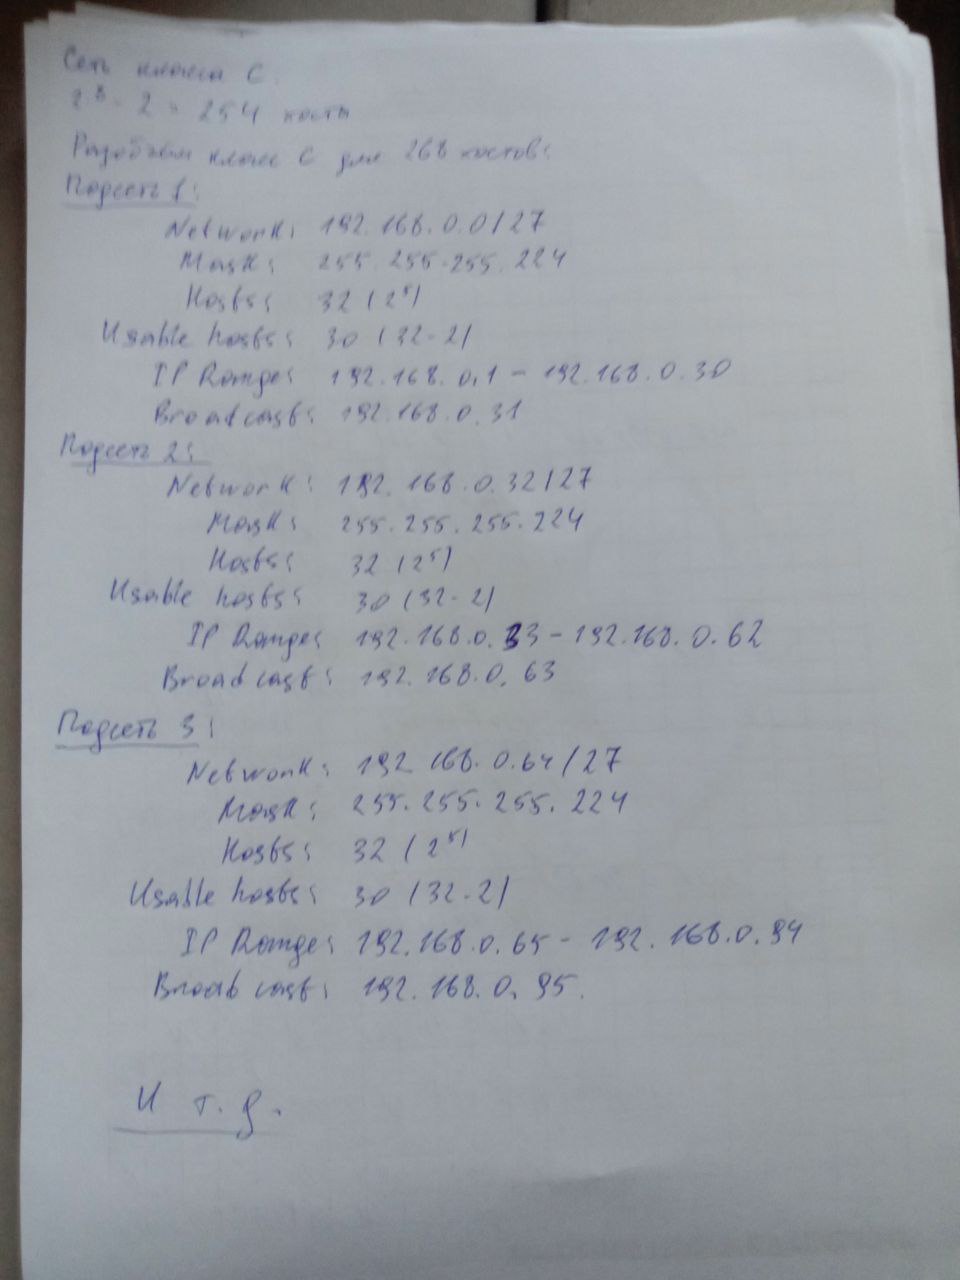 Сеть класса C
2^8 - 2 = 254 хосты
Разобъем класс C для 268 хостов:
Подсеть 1:
Network: 192.168.0.0/27
Mask: 255.255.255.224
Hosts: 32 (2^5)
Usable hosts: 30 (32-2)
IP Range: 192.168.0.1 - 192.168.0.30
Broadcast: 192.168.0.31
Подсеть 2:
Network: 192.168.0.32/27
Mask: 255.255.255.224
Hosts: 32 (2^5)
Usable hosts: 30 (32-2)
IP Range: 192.168.0.33 - 192.168.0.62
Broadcast: 192.168.0.63
Подсеть 3:
Network: 192.168.0.64/27
Mask: 255.255.255.224
Hosts: 32 (2^5)
Usable hosts: 30 (32-2)
IP Range: 192.168.0.65 - 192.168.0.94
Broadcast: 192.168.0.95.
И т.д.